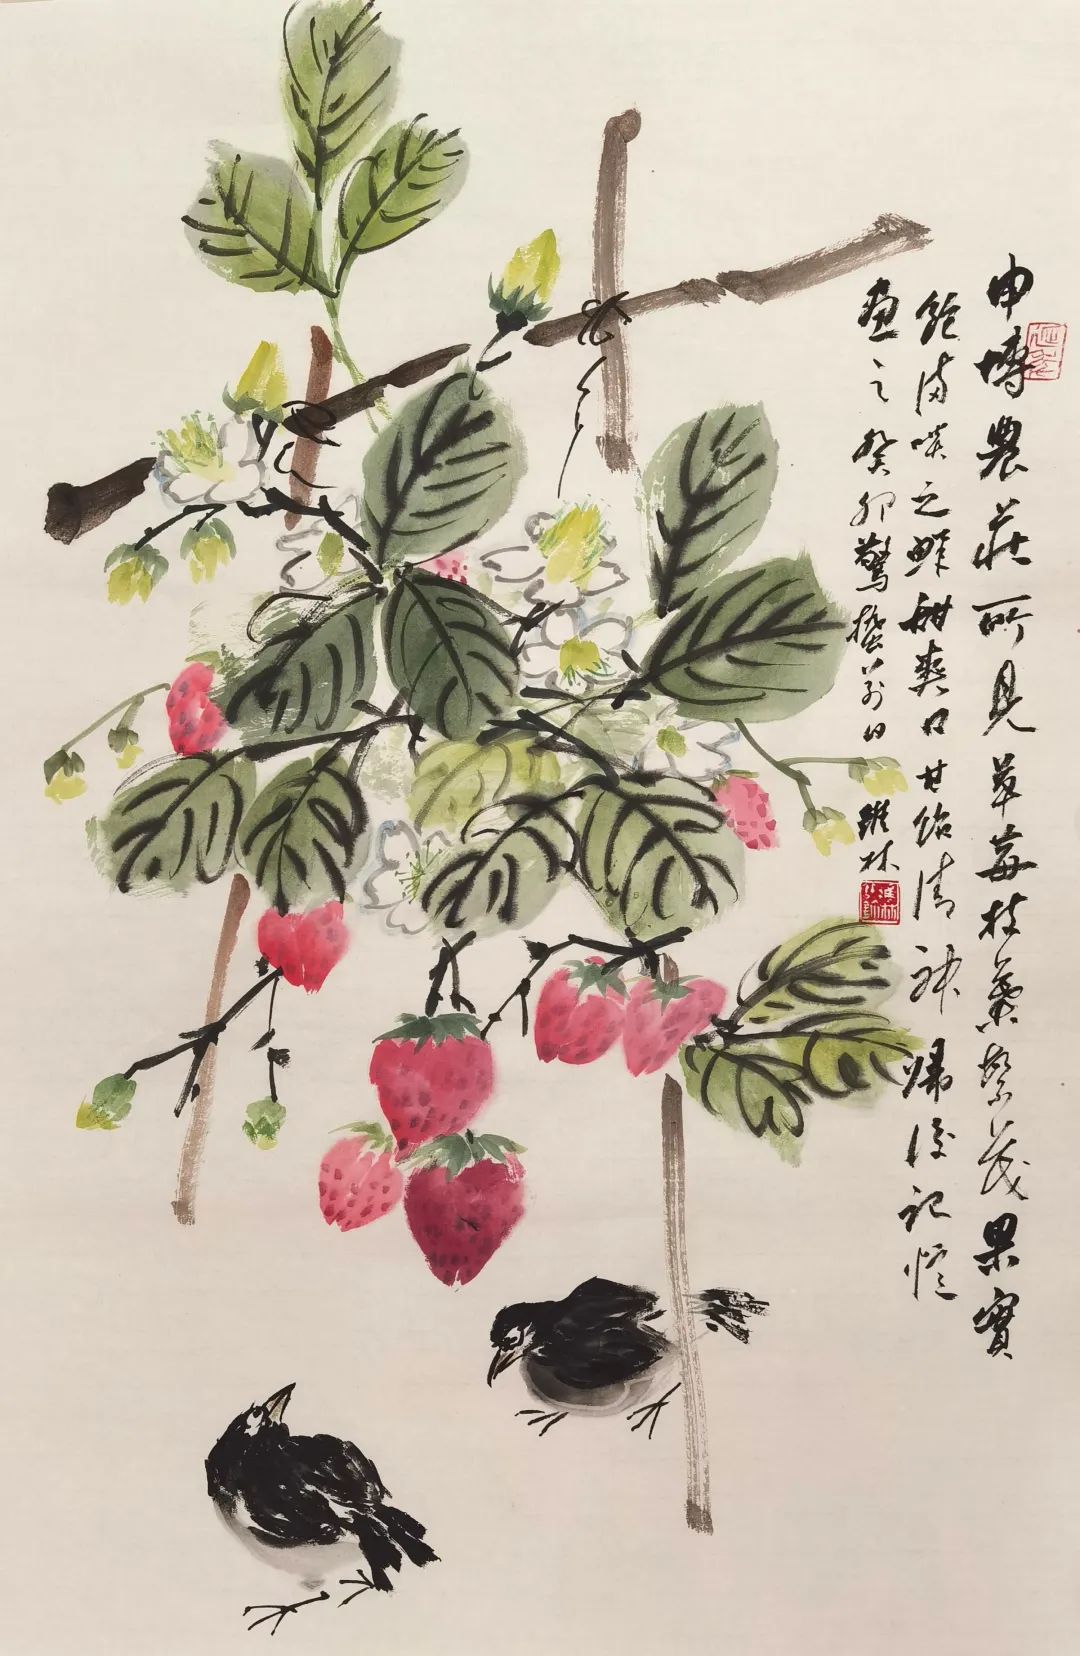 申博農莊所見草莓枝葉繁茂果實
飽滿啖之鮮甜爽口甘飴清神歸後記憶
畫之癸卯驚蟄前日
維林